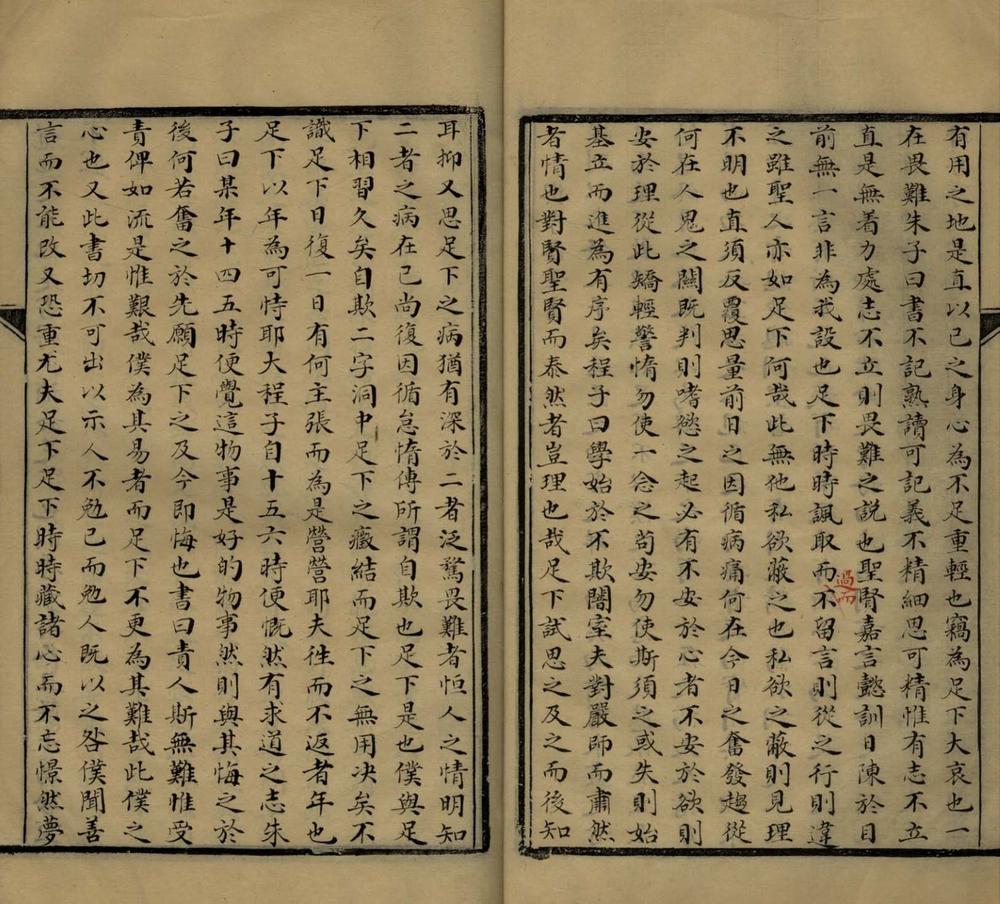 有用之地是直以己之身心為不足重輕也竊為足下大哀也一
在畏難朱子曰書不記熟讀可記義不精細思可精惟有志不立
直是無着力處志不立則畏難之説也聖賢嘉言懿訓日陳於目
前無一言非為我設也足下時時諷取而不留言則從之行則違
過而
之雖聖人亦如足下何哉此無他私欲蔽之也私欲之蔽則見理
不明也直須反覆思量前日之因循病痛何在今日之奮發趨從
何在人鬼之關既判則嗜慾之起必有不安於心者不安於欲則
安於理從此矯輕警惰勿使一念之苟安勿使斯須之或失則始
基立而進為有序矣程子曰學始於不欺闇室夫對嚴師而肅然
者情也對賢聖賢而泰然者豈理也哉足下試思之及之而後知
耳抑又思足下之病猶有深於二者泛騖畏難者恒人之情明知
二者之病在已尚復因循怠惰傳所謂自欺也足下是也僕與足
下相習久矣自欺二字洞中足下之癥結而足下之無用决矣不
識足下日復一日有何主張而為是營營耶夫徃而不返者年也
足下以年為可恃耶大程子自十五六時便慨然有求道之志朱
子曰某年十四五時便覺這物事是好的物事然則與其悔之於
後何若奮之於先願足下之及今即悔也書曰責人斯無難惟受
責俾如流是惟艱哉僕為其易者而足下不更為其難哉此僕之
心也又此書切不可出以示人不勉己而勉人既以之咎僕聞善
言而不能改又恐重尤夫足下足下時時藏諸心而不忘憬然夢